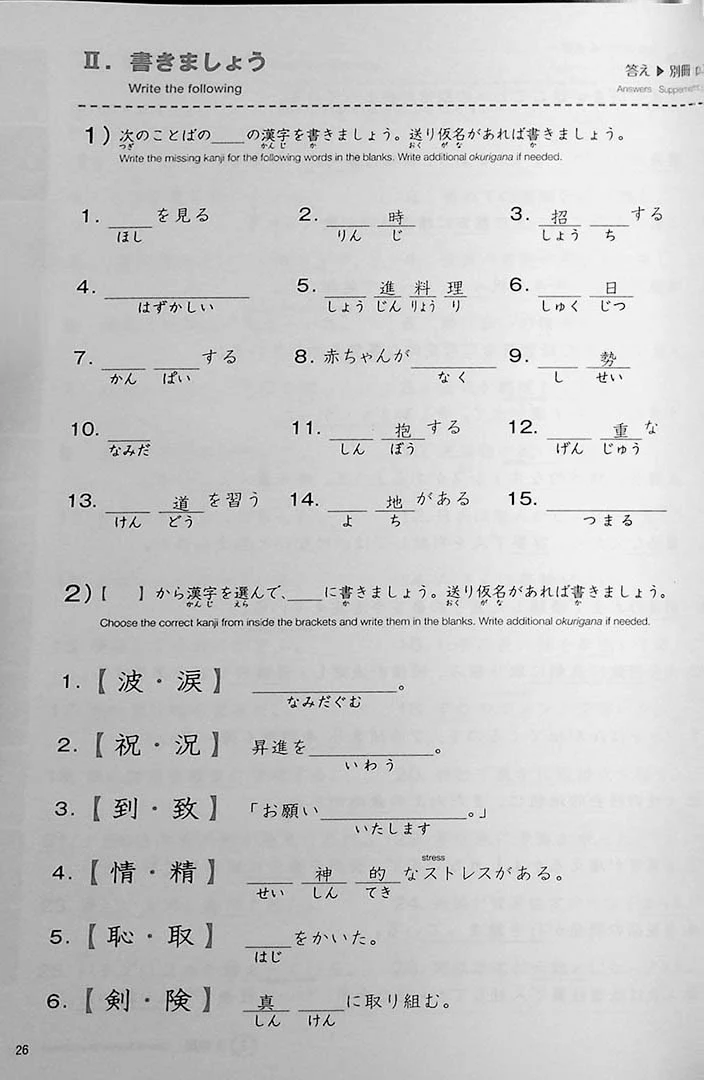 Ⅱ. 書きましょう
Write the following
答え ▶ 別冊 p.
Answers
1) 次のことばの____の漢字を書きましょう。送り仮名があれば書きましょう。
つぎ かんじ か おく がな か
Write the missing kanji for the following words in the blanks. Write additional okurigana if needed.
1. ____を見る 2. ____ 時 3. 招 ____する
ほし りん じ しょう ち
4. ____ 5. ____ 進 料 理 6. ____ 日
はずかしい しょう じん りょう り しゅく じつ
7. ____ ____する 8. 赤ちゃんが____ 9. ____ 勢
かん ぱい なく し せい
10. ____ 11. ____ 抱する 12. ____ 重な
なみだ しん ぼう げん じゅう
13. ____ 道を習う 14. ____ 地がある 15. ____
けん どう よ ち つまる
2)【 】から漢字を選んで、____に書きましょう。送り仮名があれば書きましょう。
かんじ えら か おく がな か
Choose the correct kanji from inside the brackets and write them in the blanks. Write additional okurigana if needed.
1.【波・涙】 ____。
なみだぐむ
2.【祝・況】 昇進を____。
いわう
3.【到・致】 「お願い____。」
いたします
stress
4.【情・精】 ____ 神 的なストレスがある。
せい しん てき
5.【恥・取】 ____をかいた。
はじ
6.【剣・険】 真 ____に取り組む。
しん けん
26